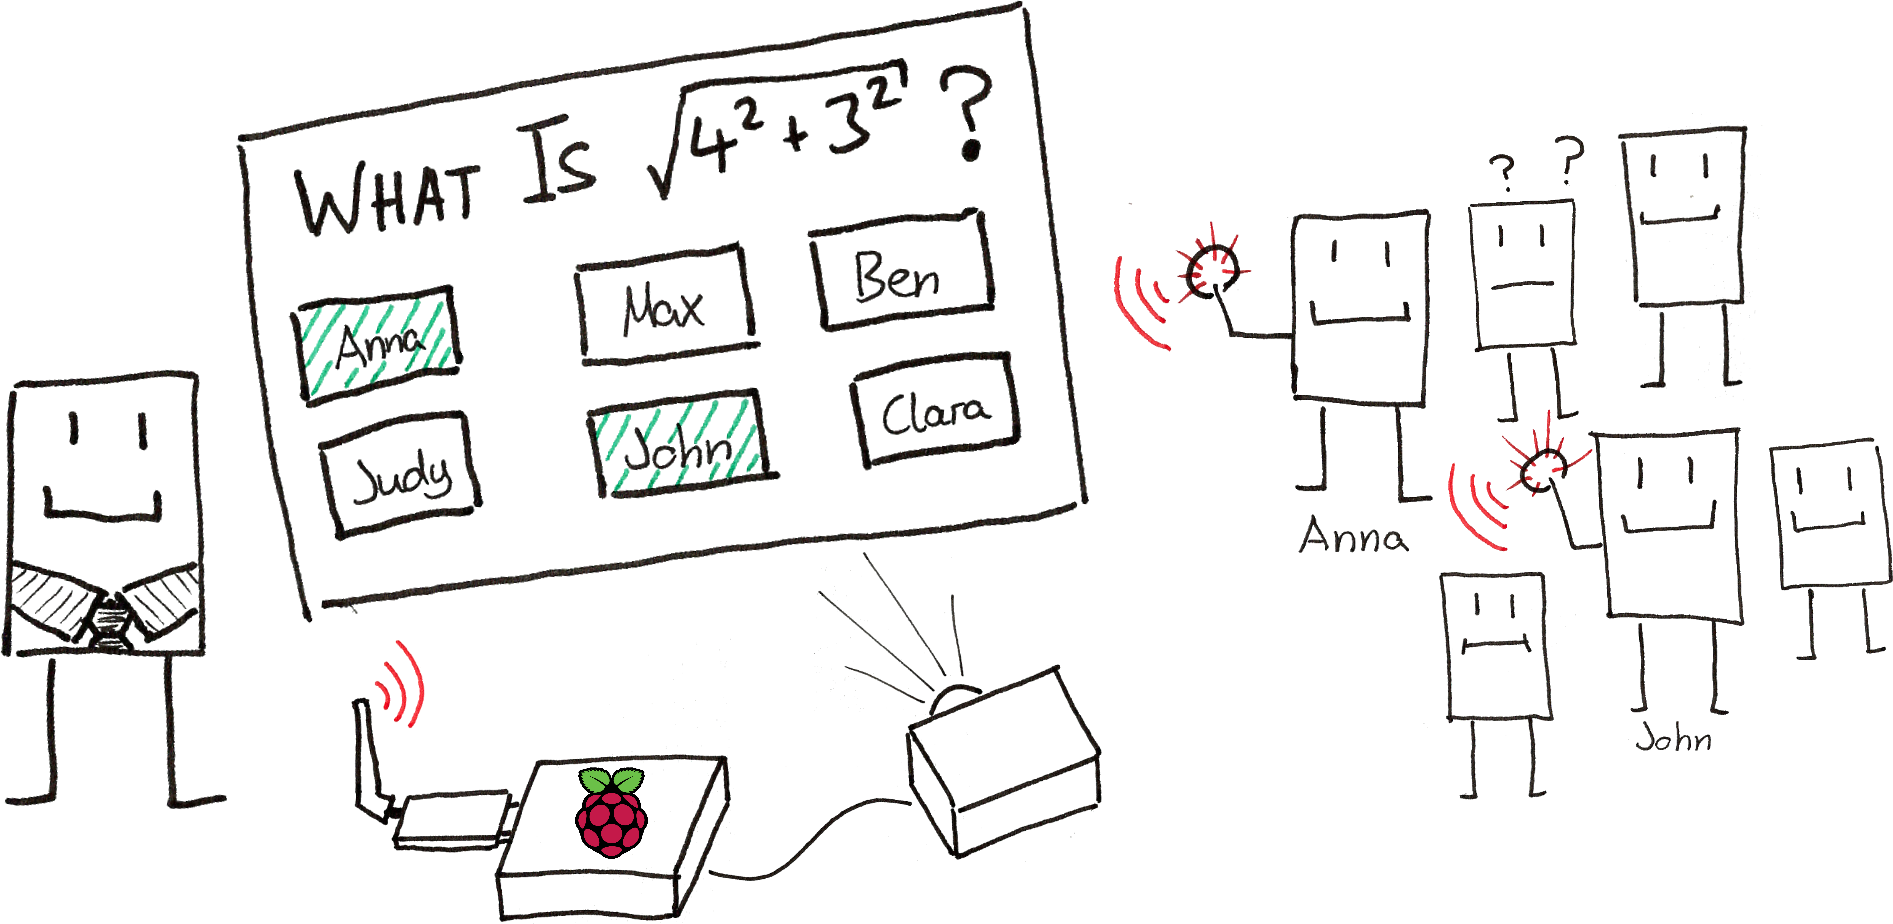 What Is √4² + 3² ?
Anna Max Ben
Judy John Clara
? ?
Anna
John